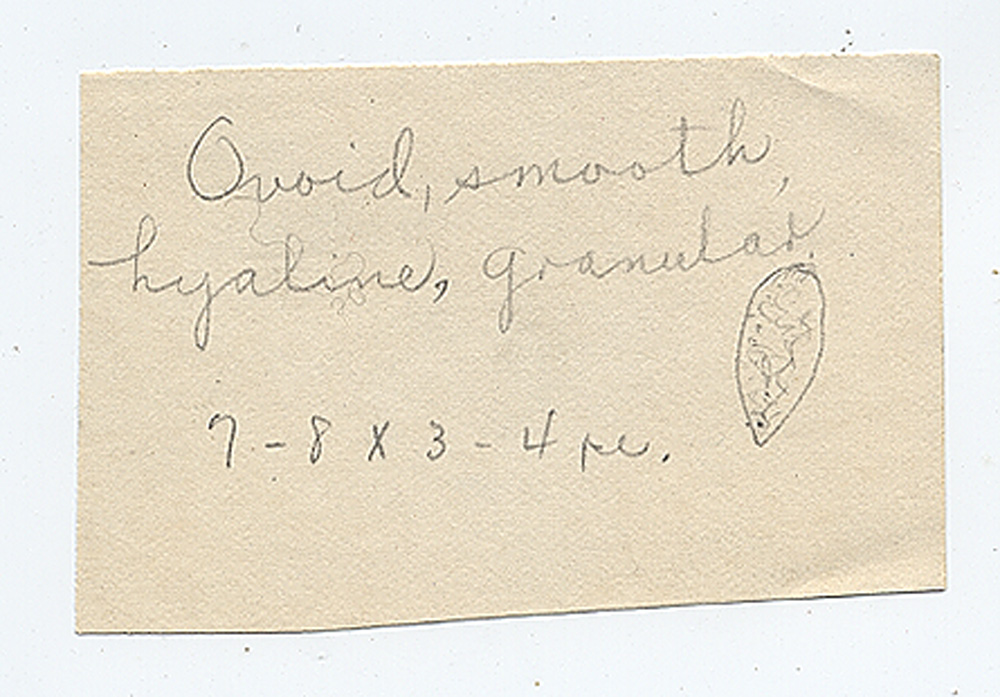 Ovoid, smooth,
hyaline, granular.
7-8 X 3-4 µ.